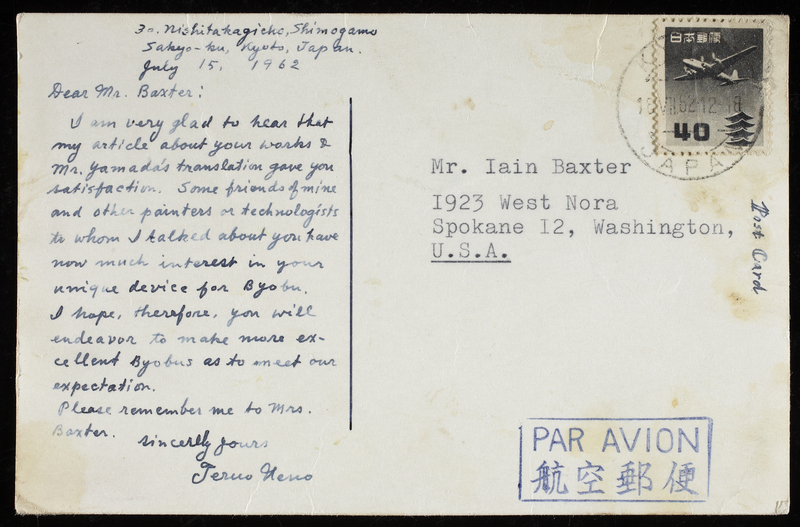 30, Nishitakagicho, Shimogamo
Sakyo-ku, Kyoto, Japan.
July 15, 1962
Dear Mr. Baxter:
I am very glad to hear that
my article about your works &
Mr. Yamada's translation gave you
satisfaction. Some friends of mine
and other painters or technologists
to whom I talked about you have
now much interest in your
unique device for Byobu.
I hope, therefore, you will
endeavor to make more ex-
cellent Byobus as to meet our
expectation.
Please remember me to Mrs.
Baxter.
Sincerely yours
Teruo Ueno
日本郵便
40
JAPAN
Mr. Iain Baxter
I923 West Nora
Spokane I2, Washington,
U.S.A.
Post Card
PAR AVION
航空郵便